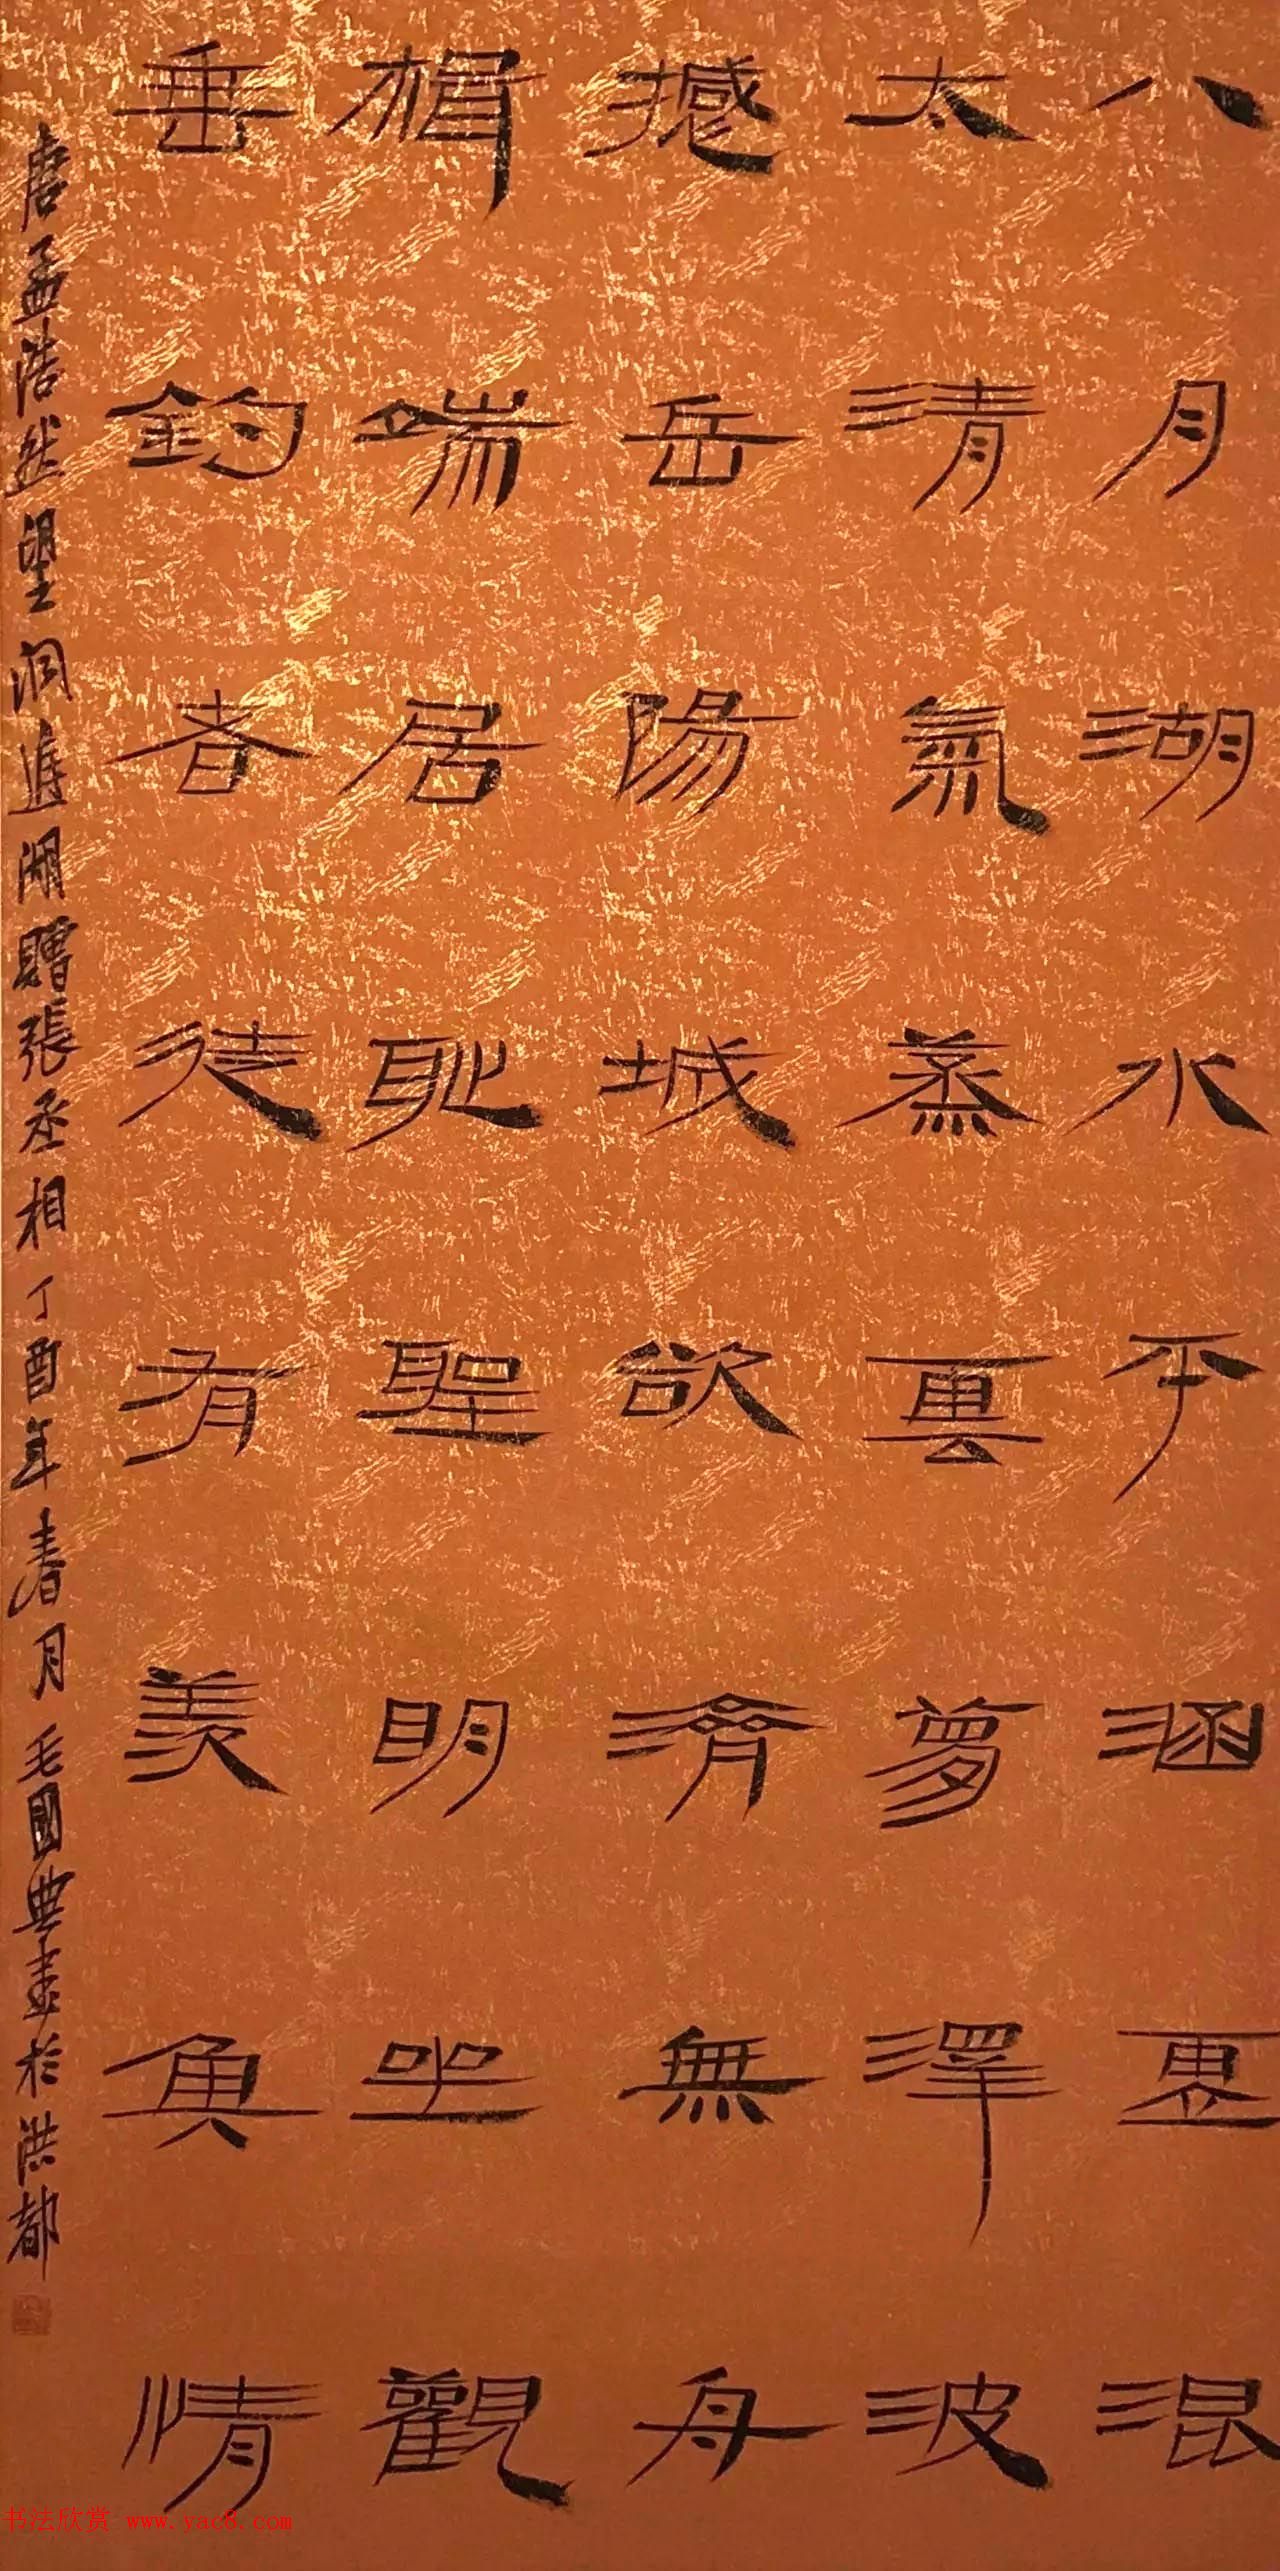 八月湖水平涵虛混
太清氣蒸雲夢澤波
撼岳陽城欲濟無舟
楫端居耻聖明坐觀
垂釣者徒有羨魚情
唐孟浩然望洞庭湖贈張丞相丁酉年春月毛國典書於洪都
书法欣赏 www.yac8.com